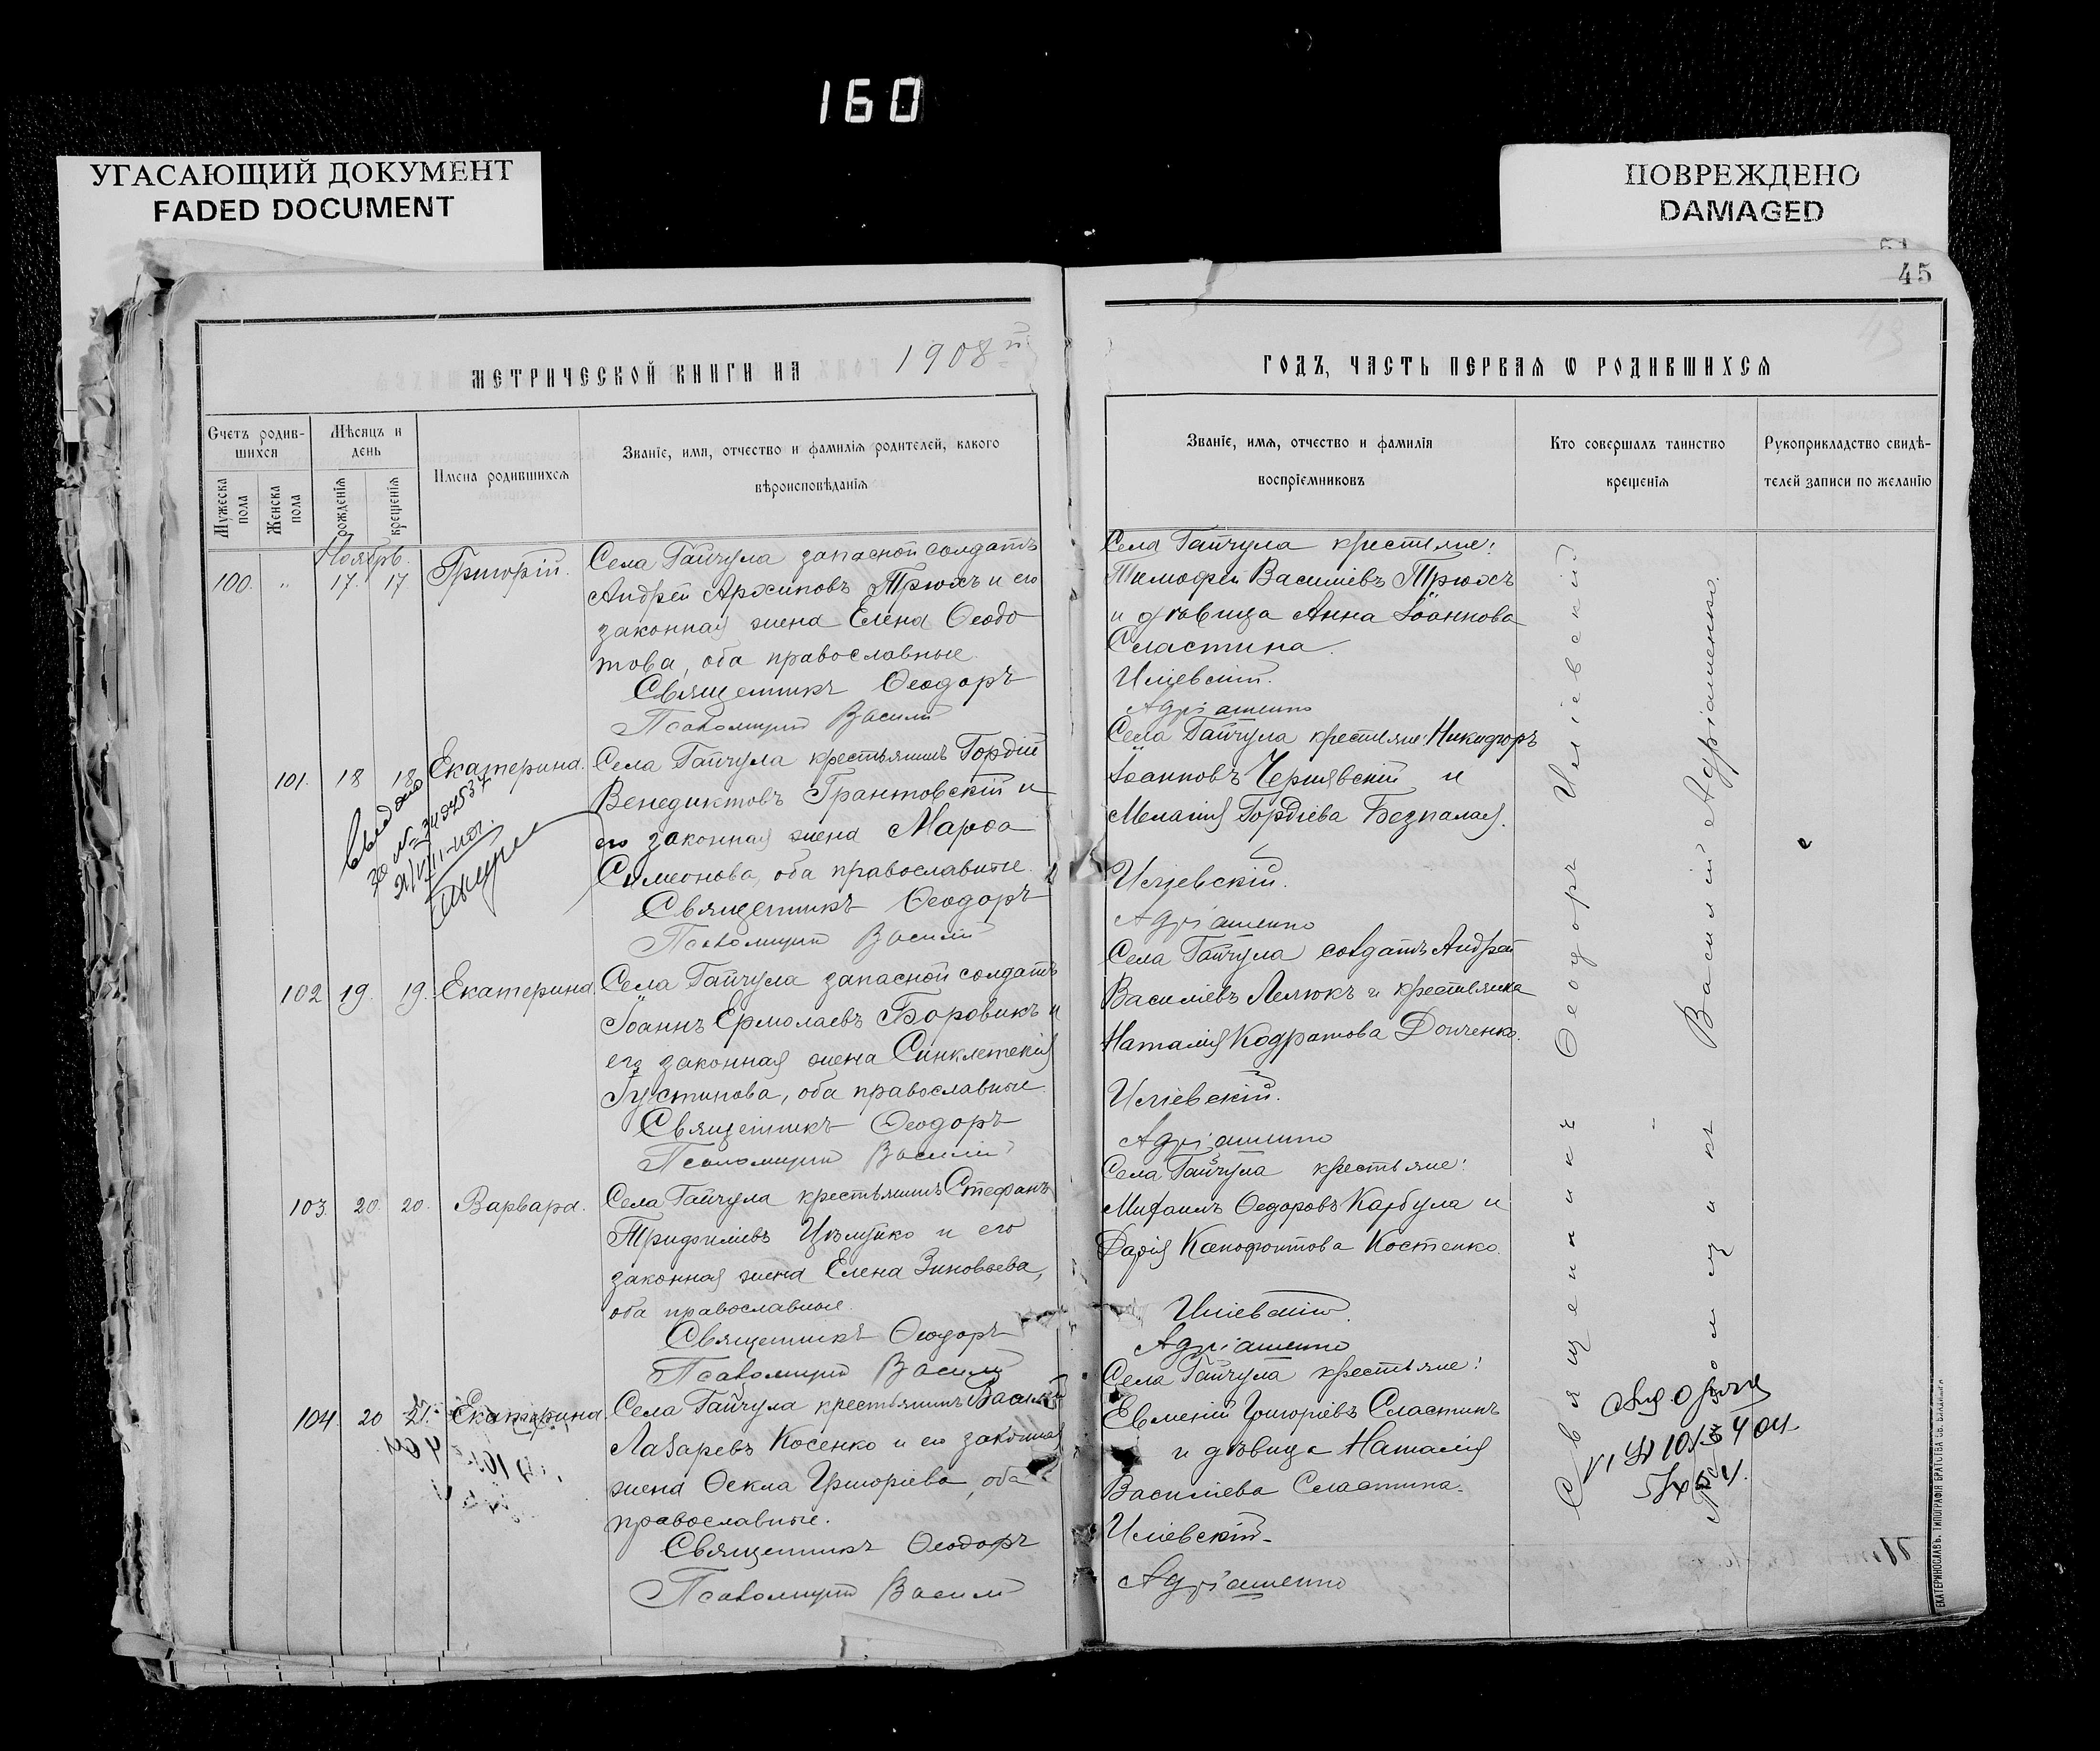 160
УГАСАЮЩИЙ ДОКУМЕНТ
FADED DOCUMENT
ПОВРЕЖДЕНО
DAMAGED
45
МЕТРИЧЕСКОЙ КНИГИ НА 1908й
Счетъ родив-
шихся
Мѣсяцъ и
день
Имена родившихся
Званіе, имя, отчество и фамилія родителей, какого
вѣроисповѣданія
Мужеска
пола
Женска
пола
Рожденія
крещенія
Ноябрь.
100. " 17. 17 Григорій.
Села Гайчула запасной солдатъ
Андрей Архиповъ Трюхъ и его
законная жена Елена Ѳеодо
това, оба православные.
Священникъ Ѳеодоръ
Псаломщикъ Василій
101. 18 18 Екатерина.
Села Гайчула крестьянинъ Гордій
Венедиктовъ Грантовскій и
его законная жена Марѳа
Симеонова, оба православные.
Священникъ Ѳеодоръ
Псаломщикъ Василій
102 19. 19. Екатерина.
Села Гайчула запасной солдатъ
Іоаннъ Ермолаевъ Боровикъ и
его законная жена Синклетекія
Іустинова, оба православные.
Священникъ Ѳеодоръ
Псаломщикъ Василій
103. 20. 20. Варвара.
Села Гайчула крестьянинъ Стефанъ
Трифиліевъ Цѣлуйко и его
законная жена Елена Зиновьева,
оба православные.
Священникъ Ѳеодоръ
Псаломщикъ Василій
104. 20 21. Екатерина.
Села Гайчула крестьянинъ Василій
Лазаревъ Косенко и его законная
жена Ѳекла Григоріева, оба
православные.
Священникъ Ѳеодоръ
Псаломщикъ Василій
ГОДЪ, ЧАСТЬ ПЕРВАЯ Ѡ РОДИВШИХСЯ
Званіе, имя, отчество и фамилія
воспріемниковъ
Кто совершалъ таинство
крещенія
Рукоприкладство свидѣ-
телей записи по желанію
Села Гайчула крестьяне:
Тимофей Василіевъ Трюхъ
и дѣвица Анна Іоаннова
Сластина.
Иліевскій.
Адріашенко
Села Гайчула крестьяне: Никифоръ
Іоанновъ Чернявскій и
Меланія Гордіева Безпалая.
Иліевскій.
Адріашенко
Села Гайчула солдатъ Андрей
Василіевъ Лелюкъ и крестьянка
Наталія Кодратова Донченко.
Иліевскій.
Адріашенко
Села Гайчула крестьяне:
Михаилъ Ѳедоровъ Карбула и
Дарія Ксенофонтова Костенко.
Иліевскій.
Адріашенко
Села Гайчула крестьяне:
Евменій Григоріевъ Сластинъ
и дѣвица Наталія
Василіева Сластина.
Иліевскій.
Адріашенко
Священникъ Ѳеодоръ Иліевскій
Псаломщикъ Василій Адріашенко.
ЕКАТЕРИНОСЛАВЪ. ТИПОГРАФІЯ БРАТСТВА СВ. ВЛАДИМІРА